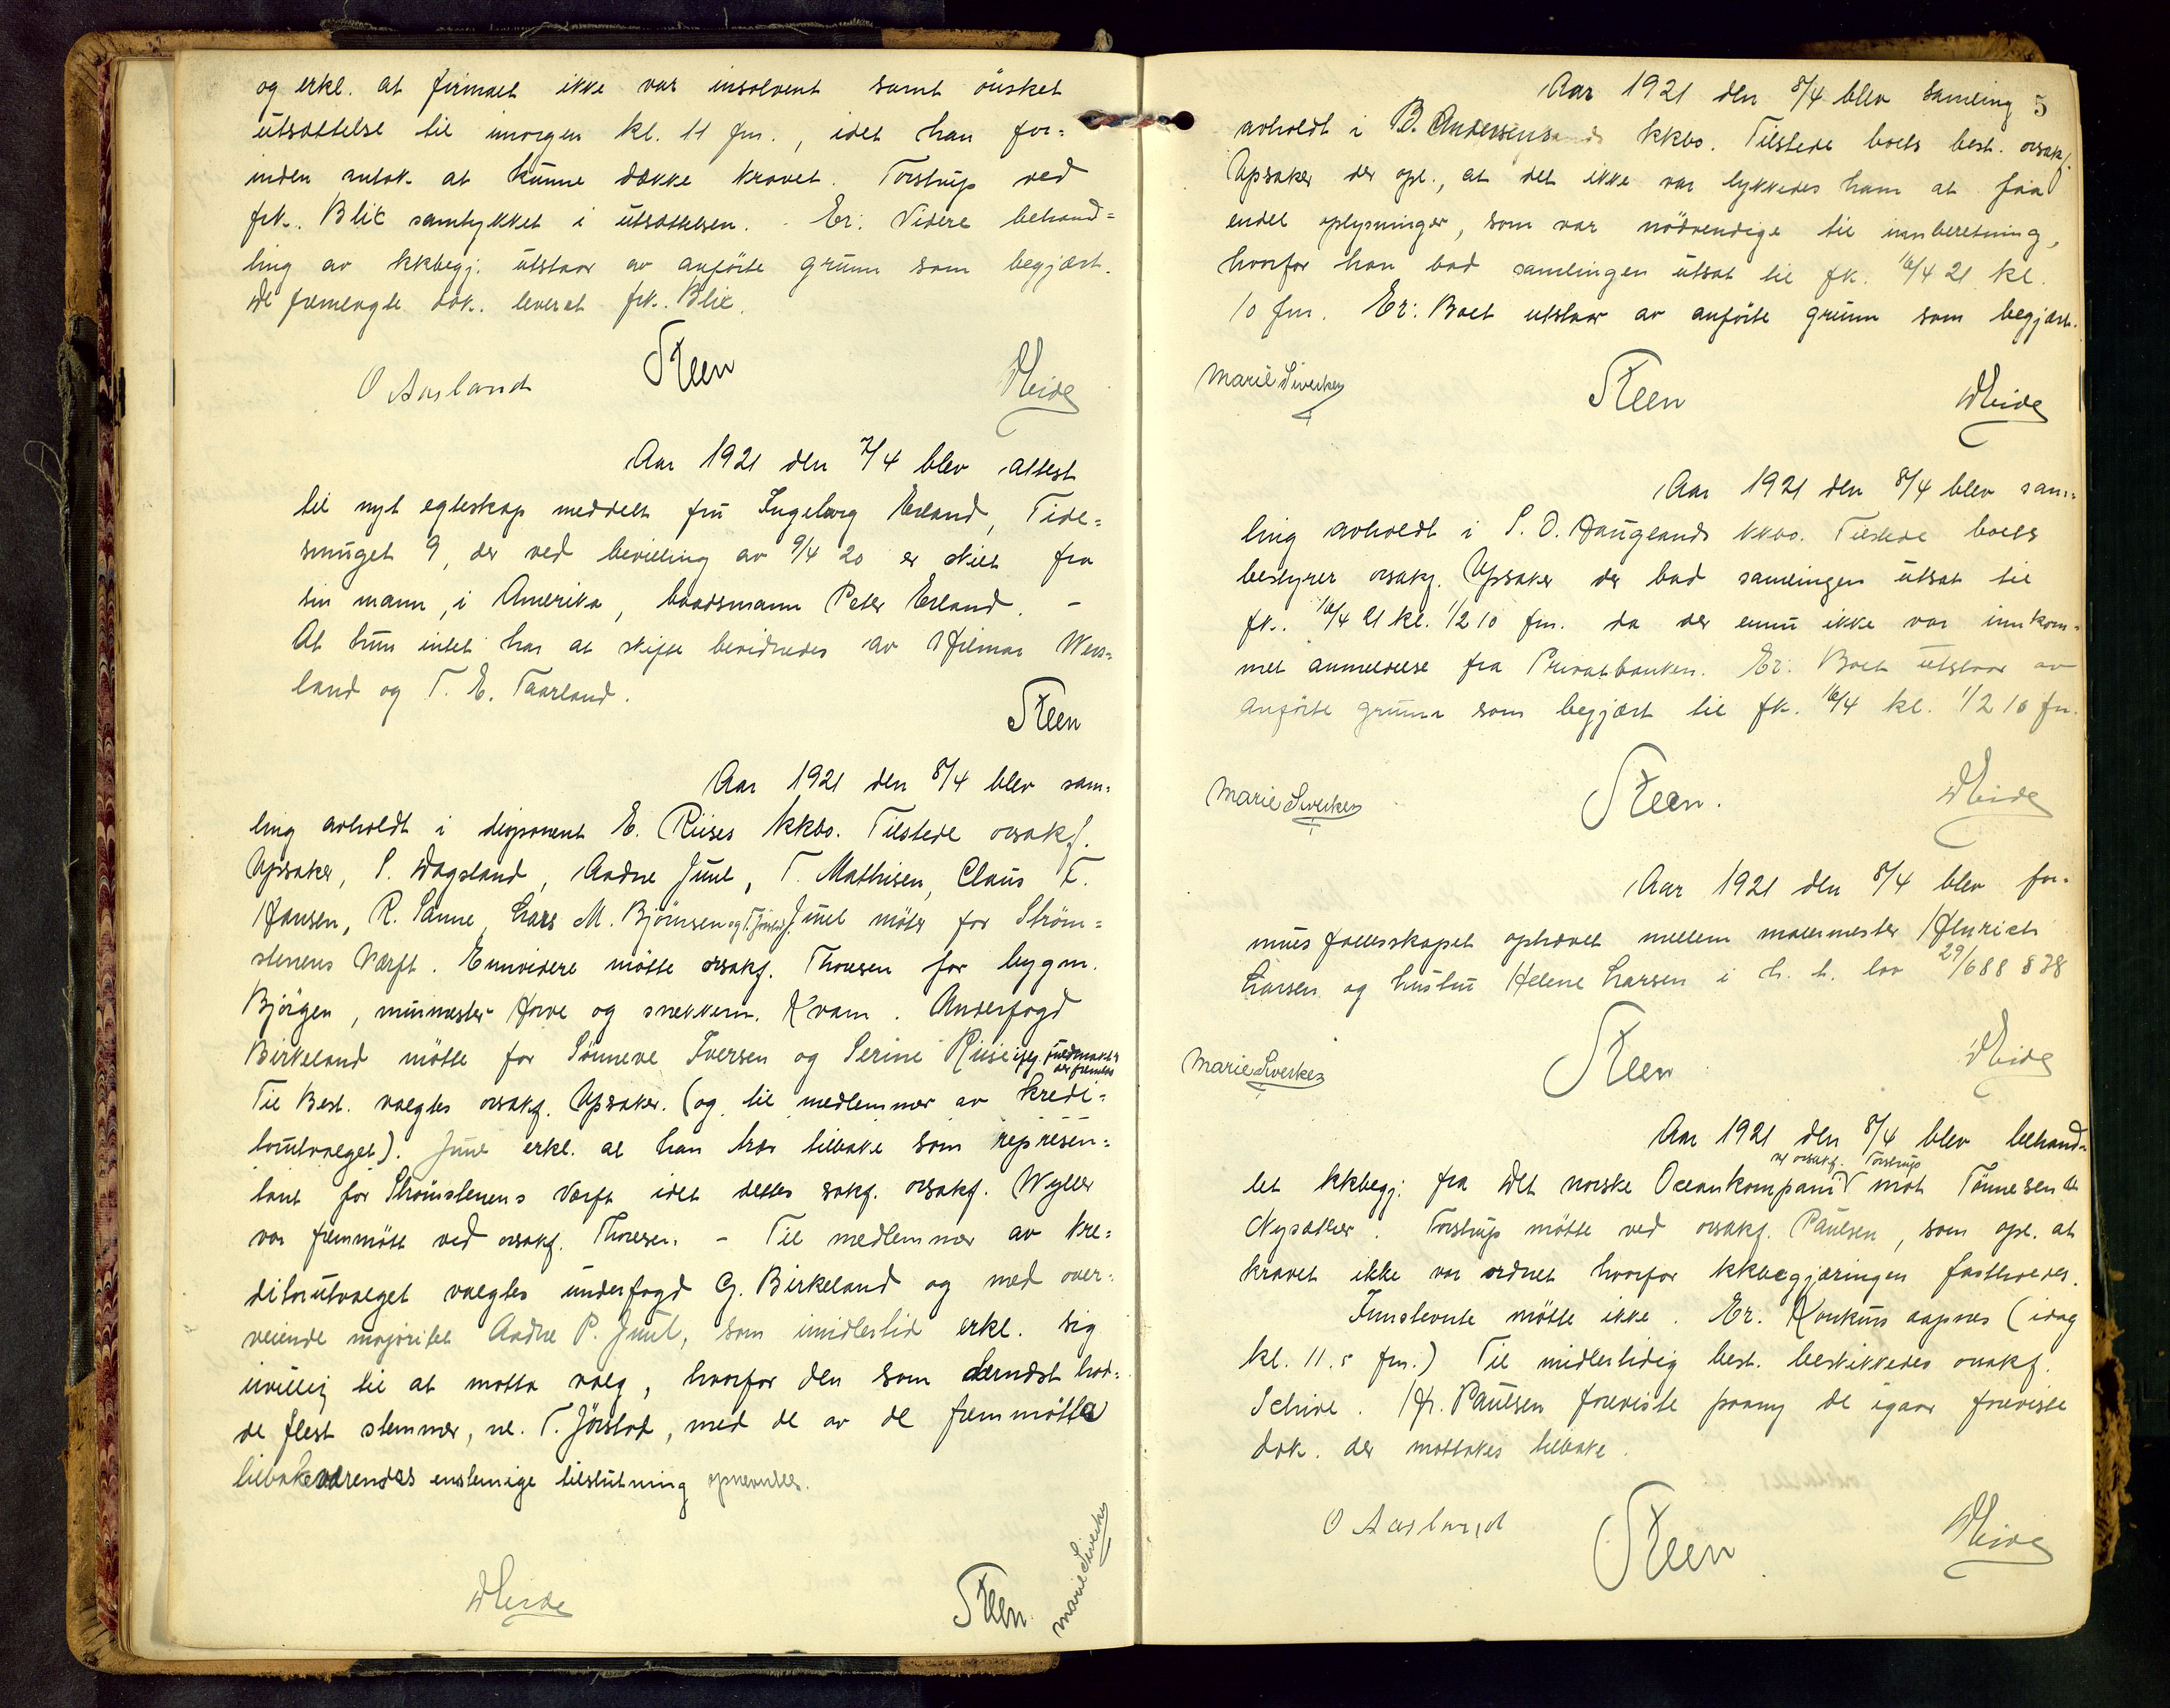 og erkl. at firmaet ikke var insolvent samt ønsket
utsættelse til imorgen kl. 11 fm., idet han for-
inden antok at kunne dække kravet. Torstrup ved
frk. Blix samtykket i utsættelsen. - Er: Videre behand-
ling av kkbegj. utstaar av anførte grunn som begjært.
De fremlagte dok. leveret frk. Blix.
O Aasland Steen W Eide
Aar 1921 den 7/4 blev attest
til nyt egteskap meddelt fru Ingeborg Erland, Tide-
smuget 9, der ved bevilling av 9/4 20 er skilt fra
sin mann, i Amerika, baadsmann Peter Erland. -
At hun intet har at skifte bevidnedes av Hilmar
land og T. E. Taarland.
Steen
Aar 1921 den 8/4 blev sam-
ling avholdt i disponent E. Riises kkbo. Tilstede orsakf.
Opsaker, S. Dagsland, Aadne Juul, T. Mathisen, Claus F.
Hansen, R. Sanne, Lars M. Bjørnsen og T. Jørstad. Juul møter for Strøm-
stenens Værft. Ennvidere møtte orsakf. Thoresen for bygm.
Bjørgen, murmester Horve og snekkerm. Kvam. Underfogd
Birkeland møtte for Sønneve Iversen og Serine Riise
Til Best. valgtes orsakf. Opsaker. (og til medlemmer av kredi-
torutvalget). Juul erkl. at han trær tilbake som represen-
tant for Strømstenens Værft idet dettes sakf. orsakf. Wyller
var fremmøtt ved orsakf. Thoresen. - Til medlemmer av kre-
ditorutvalget valgtes underfogd G. Birkeland og med over-
veiende majoritet Aadne P. Juul, som imidlertid erkl. sig
uvillig til at motta valg, hvorfor den som dernæst had-
de flest stemmer, nl. T. Jørstad, med de av de fremmøtte
tilbakeværendes enstemige tilslutning opnevntes.
W Eide Steen Marie Siverkes
5
Aar 1921 den 8/4 blev samling
avholdt i B. Andersens kkbo. Tilstede boets best. orsakf.
Opsaker der opl., at det ikke var lykkedes ham at faa
endel oplysninger, som var nødvendige til innberetning,
hvorfor han bad samlingen utsat til fk. 16/4 21 kl.
10 fm. Er: Boet utstaar av anførte grunn som begjært.
Marie Siverkes Steen W Eide
Aar 1921 den 8/4 blev sam-
ling avholdt i S. O. Hauglands kkbo. Tilstede boets
bestyrer orsakf. Opsaker der bad samlingen utsat til
fk. 16/4 21 kl. 1/2 10 fm. da der ennu ikke var innkom-
met anmeldelse fra Privatbanken. Er: Boet utstaar av
anførte grunn som begjært til fk. 16/4 kl. 1/2 10 fm.
Marie Siverkes Steen. W Eide
Aar 1921 den 8/4 blev for-
mues fællesskapet ophævet mellem malermester Hinrich
Larsen og hustru Helene Larsen i h. t. lov 29/6 88 § 38
Marie Siverkes Steen W Eide
Aar 1921 den 8/4 blev behand-
ved orsakf. Torstrup
let kkbegj. fra Det norske Oceankompani mot Tønnesen &
Nysæther. Torstrup møtte ved orsakf. Paulsen, som opl. at
kravet ikke var ordnet hvorfor kkbegjæringen fastholdes.
Innstevnte møtte ikke. Er. Konkurs aapnes (idag
kl. 11.5 fm.) Til midlertidig best. beskikkedes orsakf.
Schive. Hr. Paulsen foreviste paany de igaar foreviste
dok. der mottokes tilbake.
O Aasland Steen W Eide